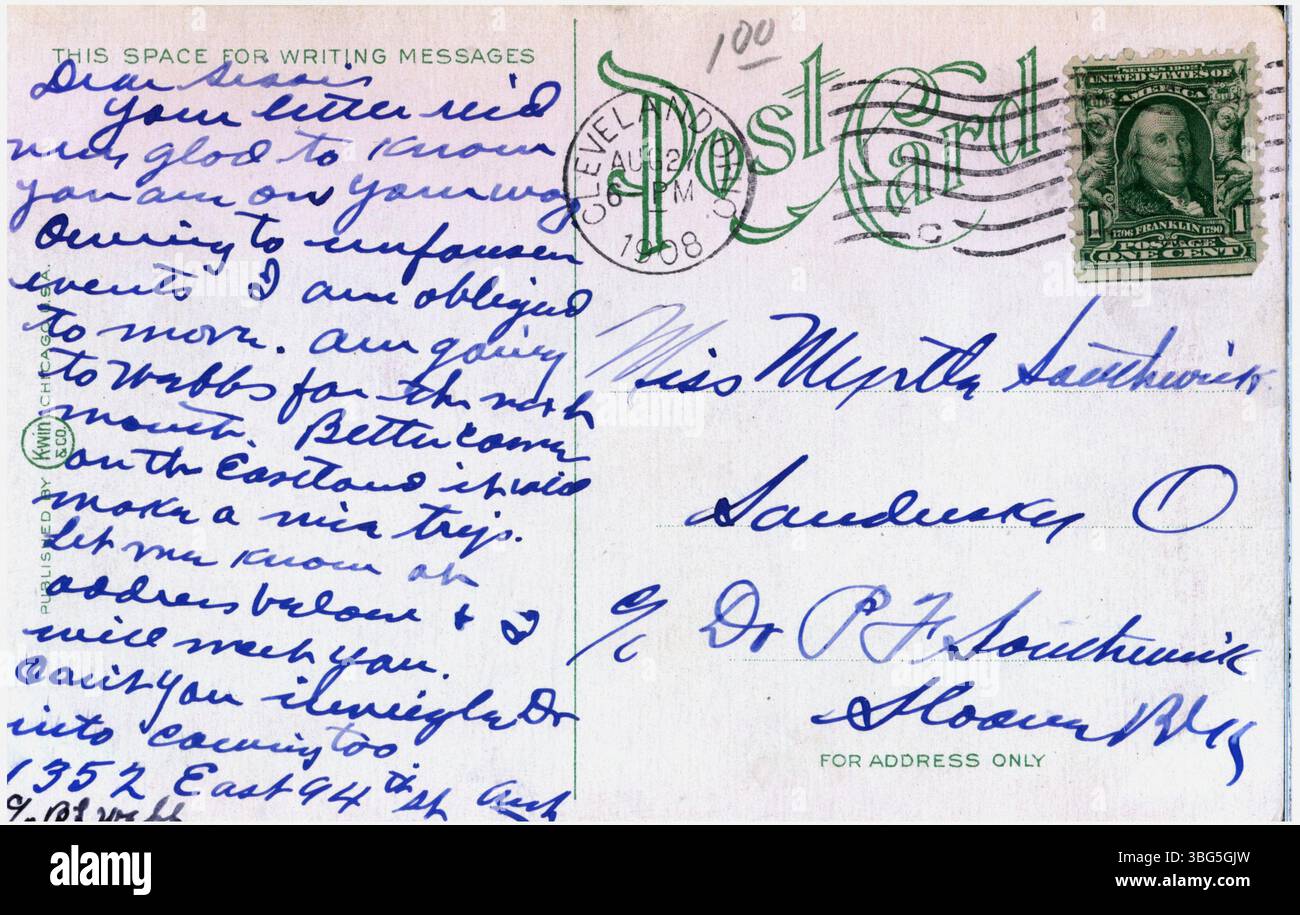 THIS SPACE FOR WRITING MESSAGES
Dear
Your letter rec'd
very glad to know
you are on your way
Owing to unforseen
events I am obliged
to move. Am going
to Webbs for the next
month. Better come
on the Eastland it will
make a nice trip.
Let me know at
address below & I
will meet you.
Can't you inveigle Dr
into coming too
1352 East 94th St
c/o Webb
PUBLISHED BY KWIN & CO. CHICAGO, U.S.A.
1 00
Post Card
CLEVELAND, OHIO
AUG 27
6 PM
1908
C
SERIES 1902
UNITED STATES OF
AMERICA
1 1796 FRANKLIN 1790 1
POSTAGE
ONE CENT
Miss Myrtle Southwick
Sandusky O
c/o Dr P F Southwick
Sloane Blk
FOR ADDRESS ONLY
alamy
alamy
Image ID: 3BG5GJW
www.alamy.com